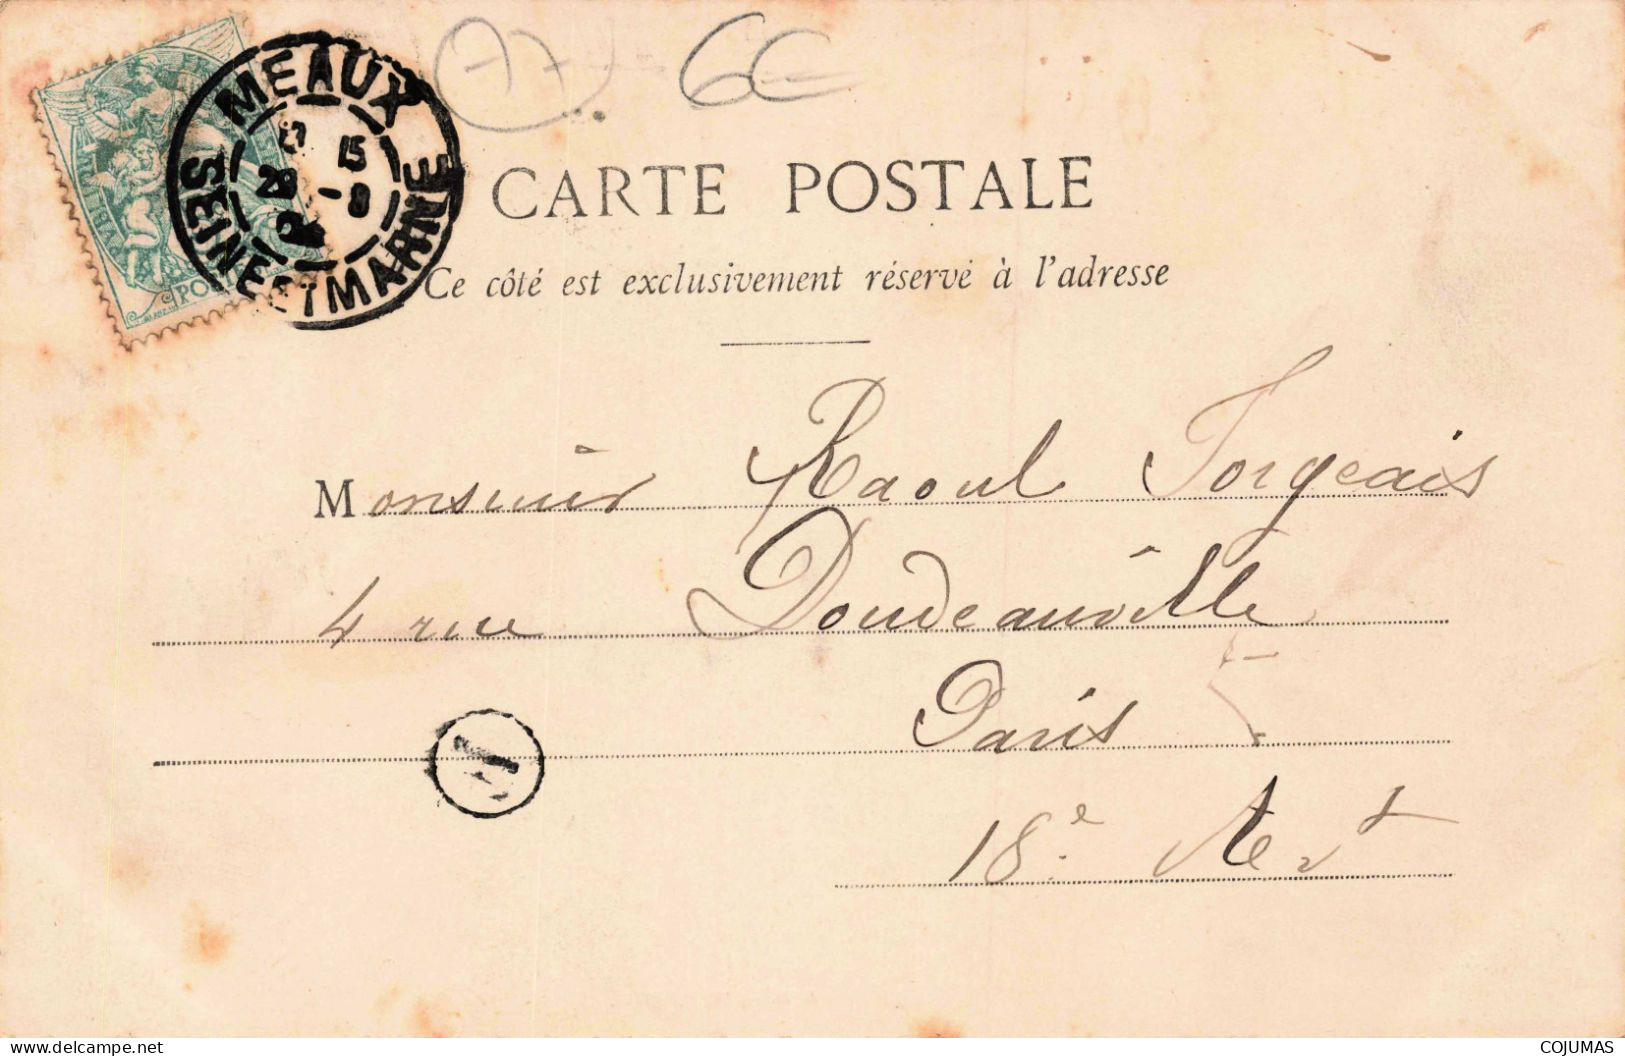 77 6€
MEAUX
17 15
29 -8
04
SEINE ET MARNE
POSTES
CARTE POSTALE
Ce côté est exclusivement réservé à l'adresse
Monsieur Raoul Forgeais
4 rue Doudeauville
Paris
18e Art
www.delcampe.net
COJUMAS